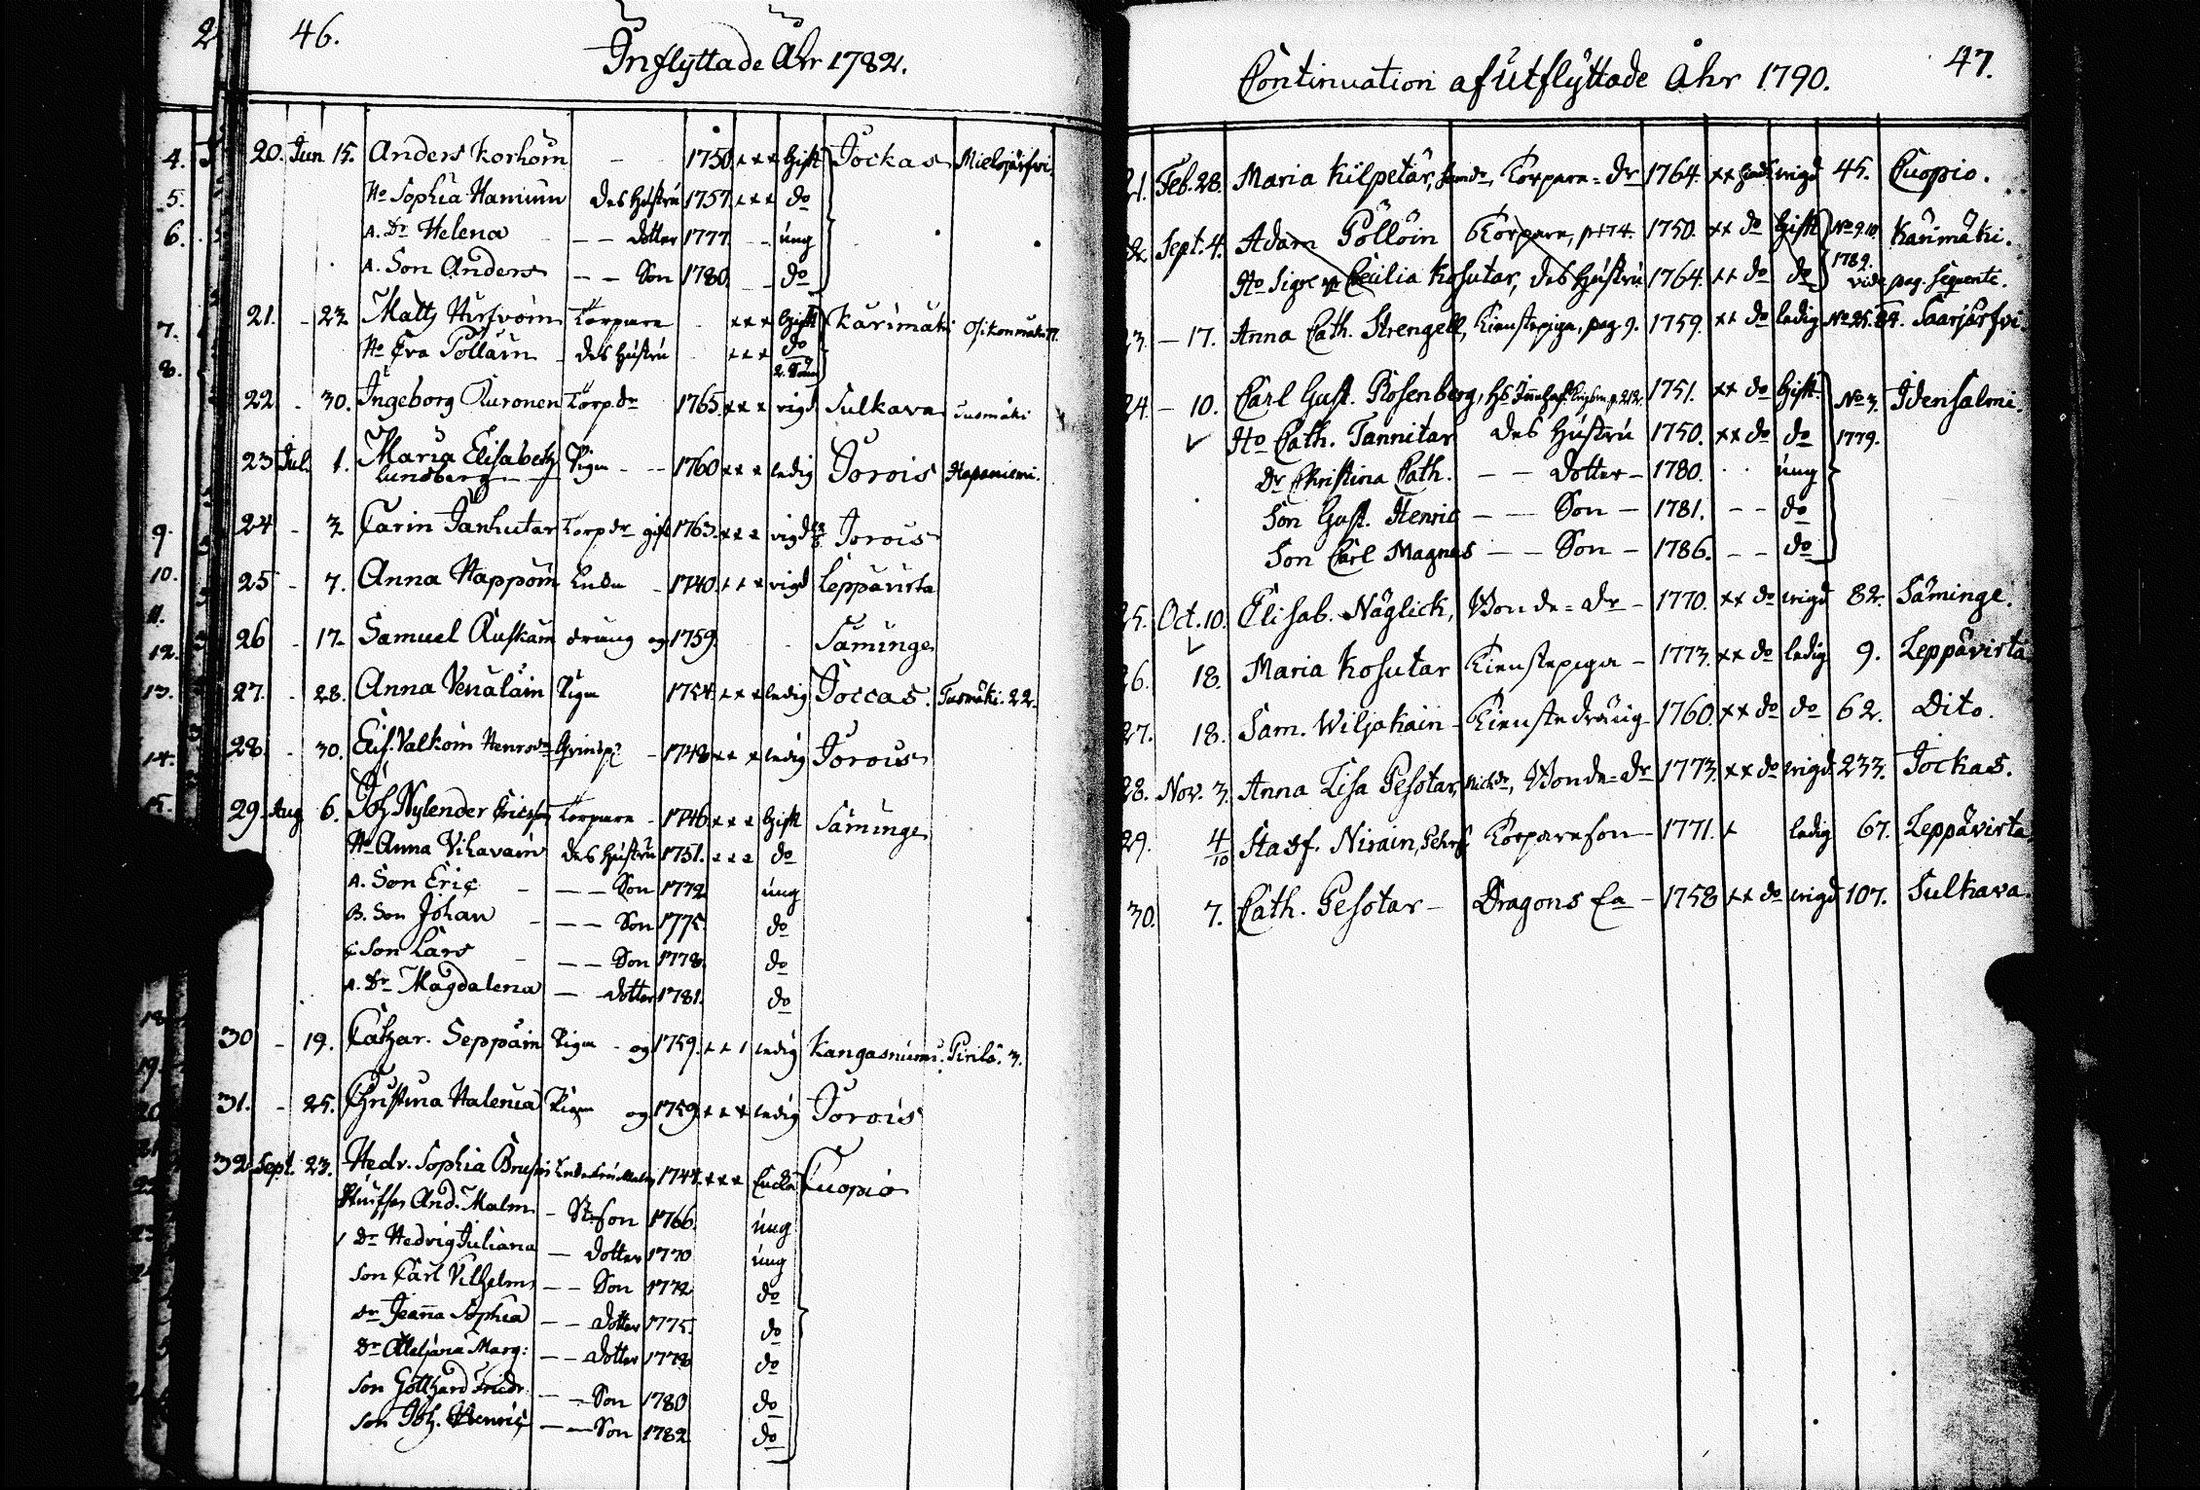 46.
Inflyttade Åhr 1782.
20. Jun 15. Anders Korhoin - - 1750. x x x Gift Jockas
Ho Sophia Haniunn des Hustru 1757. x x x do
A. Dr Helena - - dotter 1777. - - ung
A. Son Anders - - Son 1780. - - do
21. - 22. Matts Torpare x x x Gift Karimäki
Ho Eva Pöllain des Hustru x x x do
2. Söner
22. - 30. Ingeborg Auronen Torp. dr 1765. x x x vigd Sulkava
23 Jul. 1. Maria Elisabeth Piga - - 1760 x x x ledig Jorois
Lundberg
24 - 3 Carin Janhutar Torp dr gift 1763. x x x vigd Jorois
25 - 7. Anna Happoin Enka - 1740. x x x vigd Leppävirta
26 - 17. Samuel Auskain dräng og 1759. Säminge
27. - 28. Anna Venäläin Piga 1754 x x x ledig Joccas. Tusmäki. 22.
28. - 30. Valkoin - 1748 x x x ledig Jorois
29. Aug 6. Joh Nylender Ericsson Torpare - 1746 x x x Gift Säminge
Ho Anna Vihavain des Hustru 1751. x x x do
A. Son Eric - - - Son 1772 ung
B. Son Johan - - - Son 1775. do
C Son Lars - - - Son 1778. do
A. Dr Magdalena - dotter 1781. do
30 - 19. Cathar. Seppäin Piga - og 1759. x x x ledig Kangasniemi. Pirilä. 3.
31. - 25. Christina Halenia Piga og 1759 x x x ledig Jorois
32 Sept. 23. Hedr. Sophia 1744. x x x Encka Cuopio
And. Malm - St. son 1766. ung
Dr Hedvig Juliana - dotter 1770 ung
Son Carl Vilhelm - - Son 1772 do
Dr Jeana Sophia - - dotter 1775. do
Dr Marg: - - dotter 1778 do
Son Gotthard Fridr. - - Son 1780 do
Son Joh. Henric - - Son 1782 do
47.
Continuation af Utflyttade Åhr 1790.
21. Feb. 28. Maria Kilpetär, Torpare = dr 1764. x x vigd 45. Cuopio.
22. Sept. 4. Adam Pöllöin Torpare, p 174. 1750. x x do Gift No 9. 10. Karimäki.
Ho Cecilia Kosutar, des Hustru 1764. x x do do 1789. vide pag. sequente.
23. - 17. Anna Cath. Strengell, Tienstepiga, pag 9. 1759. x x do ledig No 25. 84. Saarjärfvi
24. - 10. Carl Gust. Rosenberg, 1751. x x do Gift. No 3. Idensalmi.
Ho Cath. Tannitar des Hustru 1750. x x do do 1779.
Dr Christina Cath. - - dotter - 1780. . . ung
Son Gust. Henric - - Son - 1781. - - do
Son Carl Magnus - - Son - 1786. - - do
25. Oct. 10. Elisab. Näglick, Bonde = dr - 1770. x x do vigd 82. Säminge.
26. 18. Maria Kosutar Tienstepiga - 1773. x x do ledig 9. Leppävirta
27. 18. Sam. Wiljakain - Tienstedräng - 1760. x x do do 62. Dito.
28. Nov. 3. Anna Lisa Pesotar, Bonde = dr 1773. x x do vigd. 233. Jockas.
29. 4/10 Staff. Nirain, Torpareson - 1771. x ledig 67. Leppävirta
30. 7. Cath. Pesotar - Dragons Ea - 1758 x x do vigd 107. Sulkava.